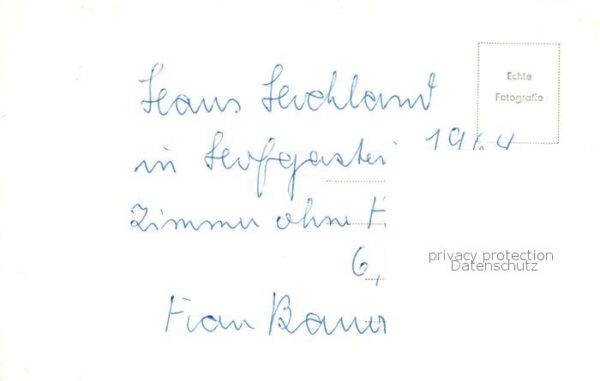 Echte
Fotografie
Haus Hochland
in Hofgastein 1964
Zimmer ohne F
6,
Frau Bauer
privacy protection
Datenschutz